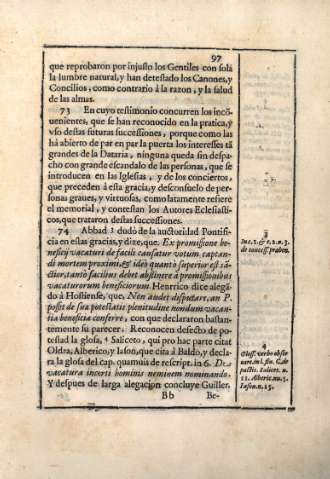 97
que reprobaron por injusto los Gentiles con sola
la lumbre natural, y han detestado los Canones, y
Concilios, como contrario à la razon, y la salud
de las almas.
73 En cuyo testimonio concurren los incō-
uenientes, que se han reconocido en la pratica, y
vso destas futuras successiones, porque como las
há abierto de par en par la puerta los interesses tā
grandes de la Dataria, ninguna queda sin despa-
cho con grande escandalo de las personas, que se
introducen en las Iglesias, y de los conciertos,
que preceden á esta gracia, y desconsuelo de per-
sonas graues, y virtuosas, como latamente refiere
el memorial, y contestan los Autores Eclesiasti-
cos, que trataron destas successiones.
74 Abbad 3 dudó de la auctoridad Pontifi-
cia en estas gracias, y dize, que. Ex promissione be-
neficij vacaturi de facili causatur votum, captan-
di mortem proximi, & ideò quantò superior est iu-
stior, tantò facilius debet abstinere à promissionibus
vacaturorum beneficiorum. Henrrico dize alega-
dó à Hostiense, que, Non audet disputare, an P.
possit de sua potestatis plenitudine nondum vacan-
tia beneficia conferre, con que declararon bastan-
temente su parecer. Reconocen defecto de po-
testad la glosa, 4 Saliceto, qui pro hac parte citat
Oldra, Alberico, y Iason, que cita á Baldo, y decla-
ra la glosa del cap. quamuis de rescript. in 6. De
vacatura incerti hominis neminem nominando.
Y despues de larga alegacion concluye Guiller.
Bb Be-
3
In c. 2. & c. 2. n. 3.
de concess. praben.
4
Glos. verbo obti-
nere, in l. fin. C. de
pactis. Salicet. n.
11. Alberic. nu. 3.
Iason. n. 15.